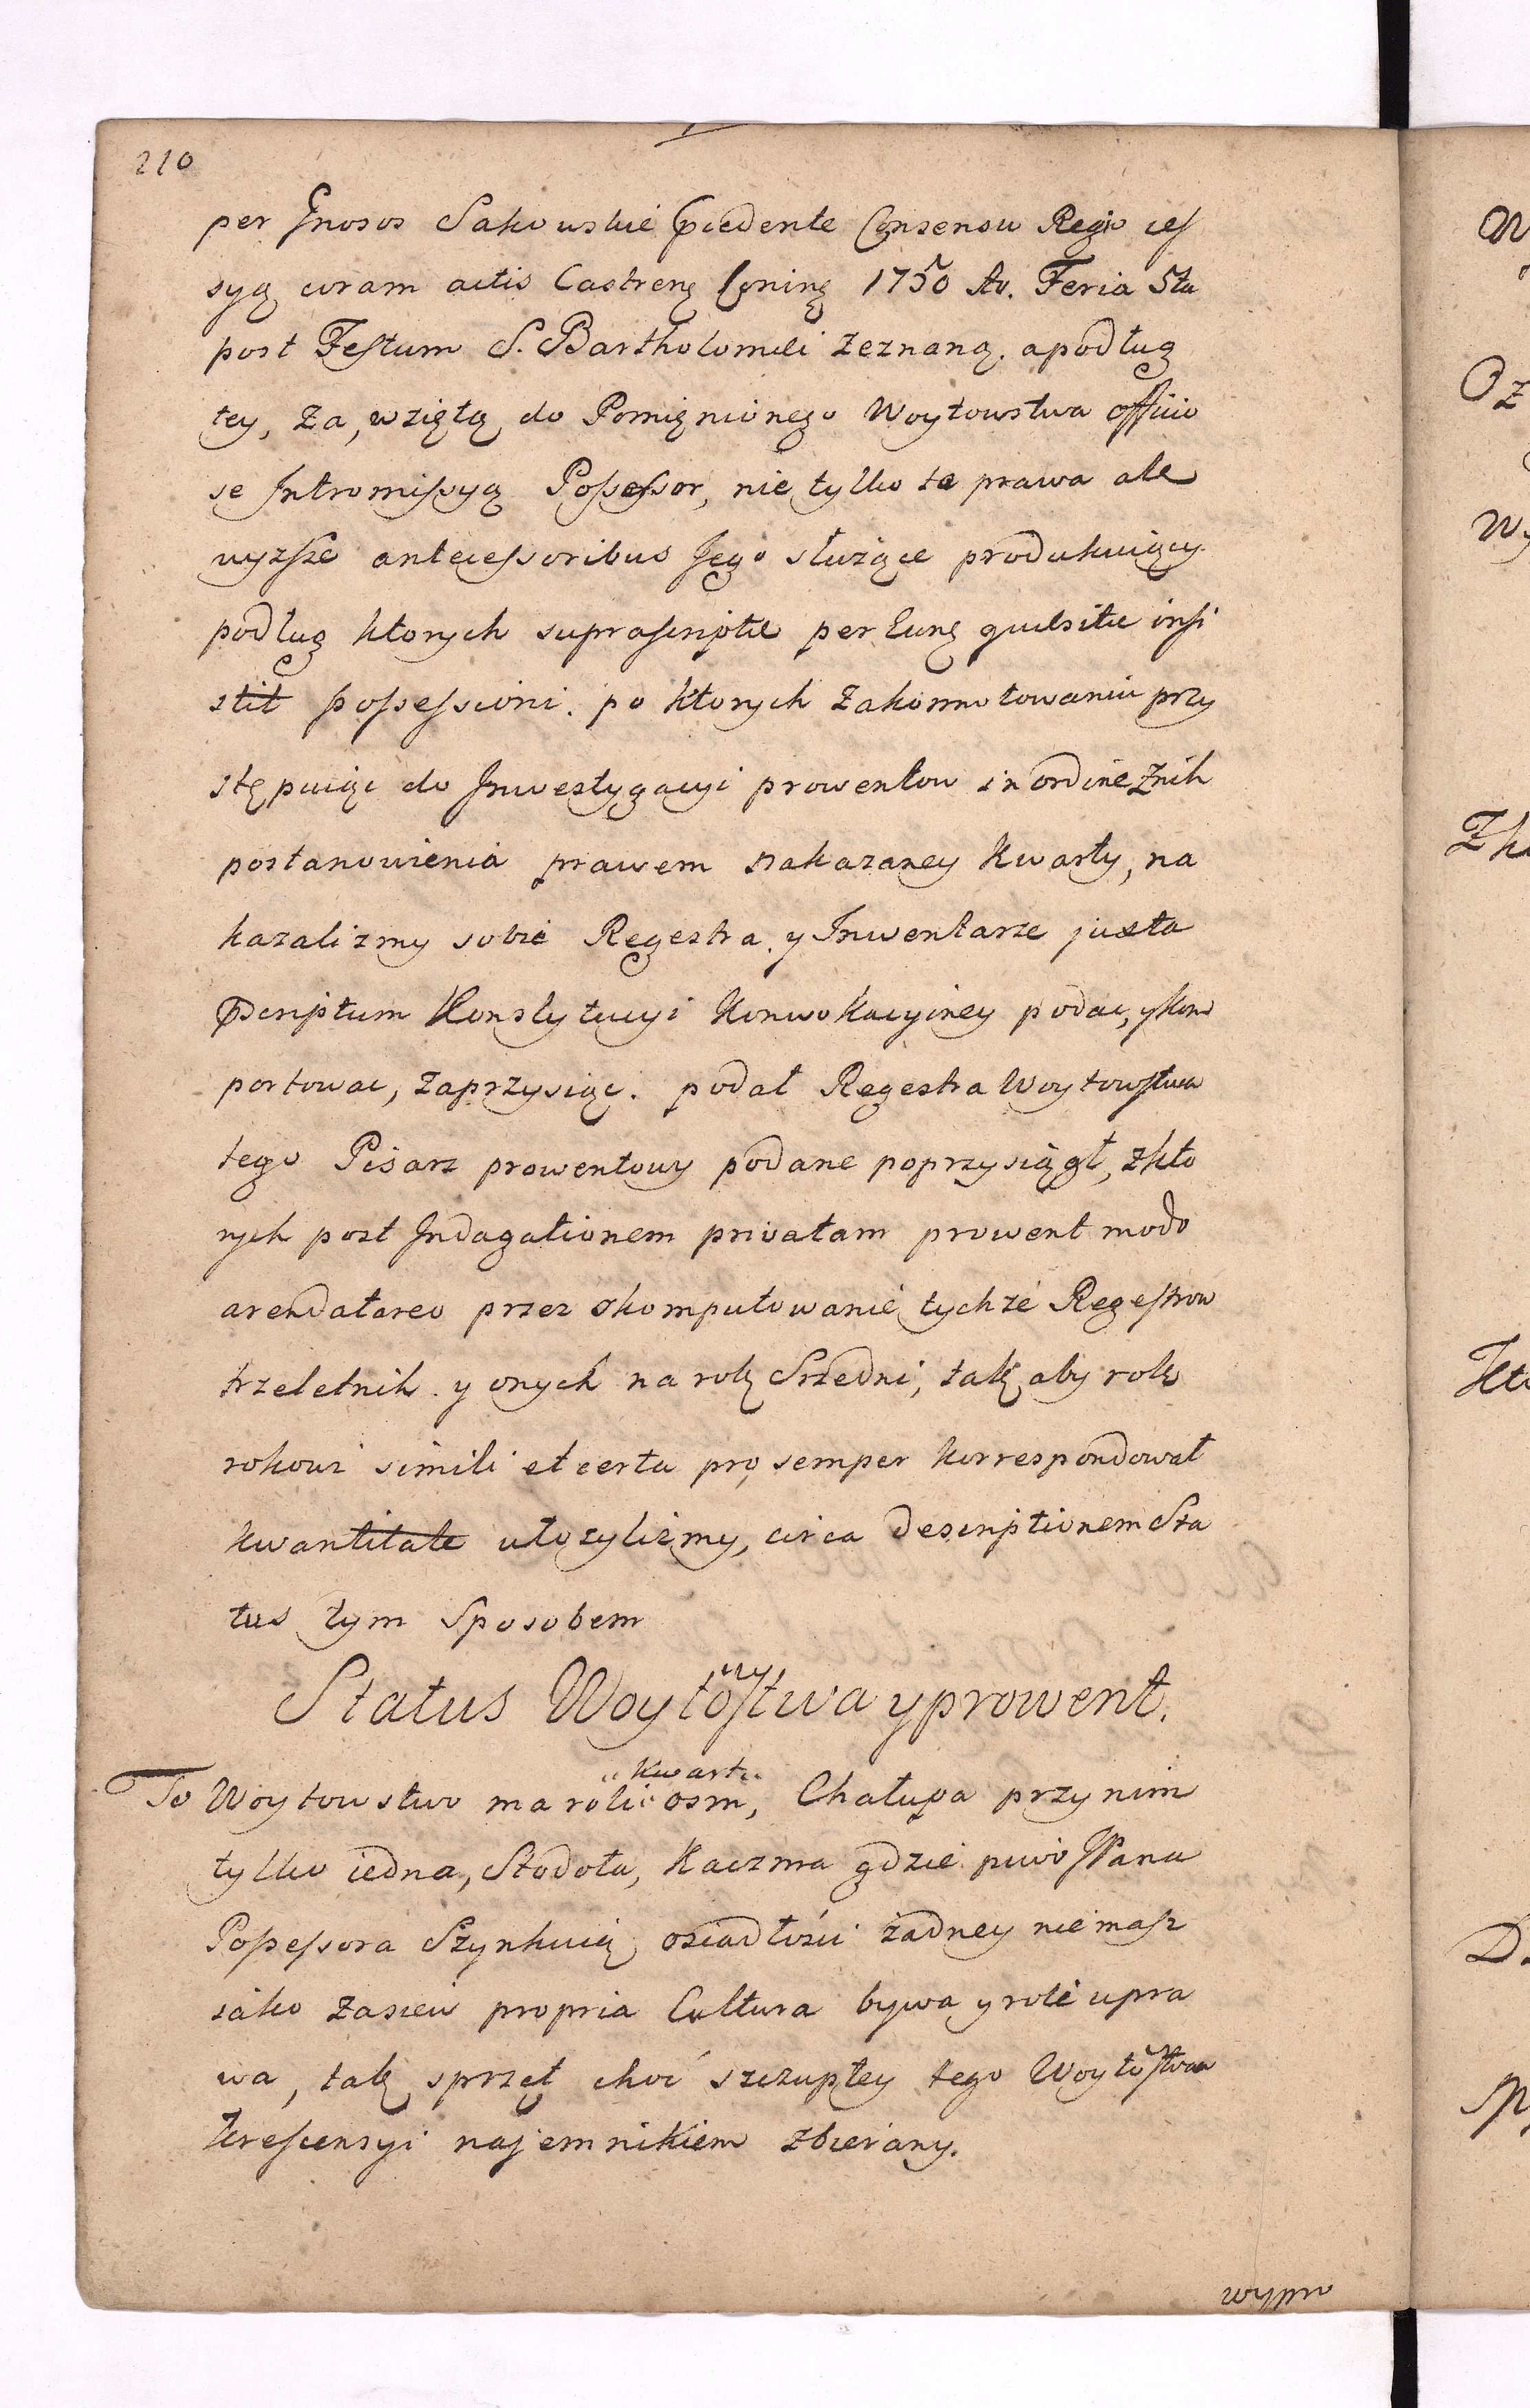 210
per Gnosos Sakouskie Pcedente Consensu Regio ces
syą coram actis Castrenę Coninę 1750 Ao. Feria 5ta
post Festum S. Bartholomei zeznaną. apodług
tey, za, wziętą do Pomięnionego Woytowstwa officio
se Intromissyą Possessor, nie tylko te prawa ale
wyzsze antecessoribus Jego służące produkuiący
podług ktorych suprascriptae per Eunę quesitae insi
stit possessioni. po ktorych zakonnotowaniu przy
stępuiąc do Inwestygacyi prowentow in ordine Znih
postanowienia prawem nakazaney kwarty, na
kazalizmy sobie Regestra. y Inwentarze juxta
Pscriptum Konstytucyi Konwokacyiney podac, y kom
portowac, zaprzysiąc. podał Regestra Woytowstwa
tego Pisarz prowentowy podane poprzysiągł, z kto
rych post Indagationem privatam prowent modo
arendatareo przez skomputowanie tychże Regestrow
trzeletnih. y onych na rok Srzedni, tak aby rok
rokowi simili et certa pro semper korrespondował
kwantitate ułożyliżmy, circa descriptionem Sta
tus tym sposobem
Status Woytostwa y prowent.
kwart
To Woytowstwo ma roli osm, Chałupa przy nim
tylko iedna, Stodoła, Kaczma gdzie piwo JPana
Possessora Szynkuią, osiadłości żadney niemasz
iako zasiew propria Cultura bywa y roli upra
wa, tak sprzęt choć szczupłey tego Woytostwa
krescensyi najemnikiem zbierany.
wypro